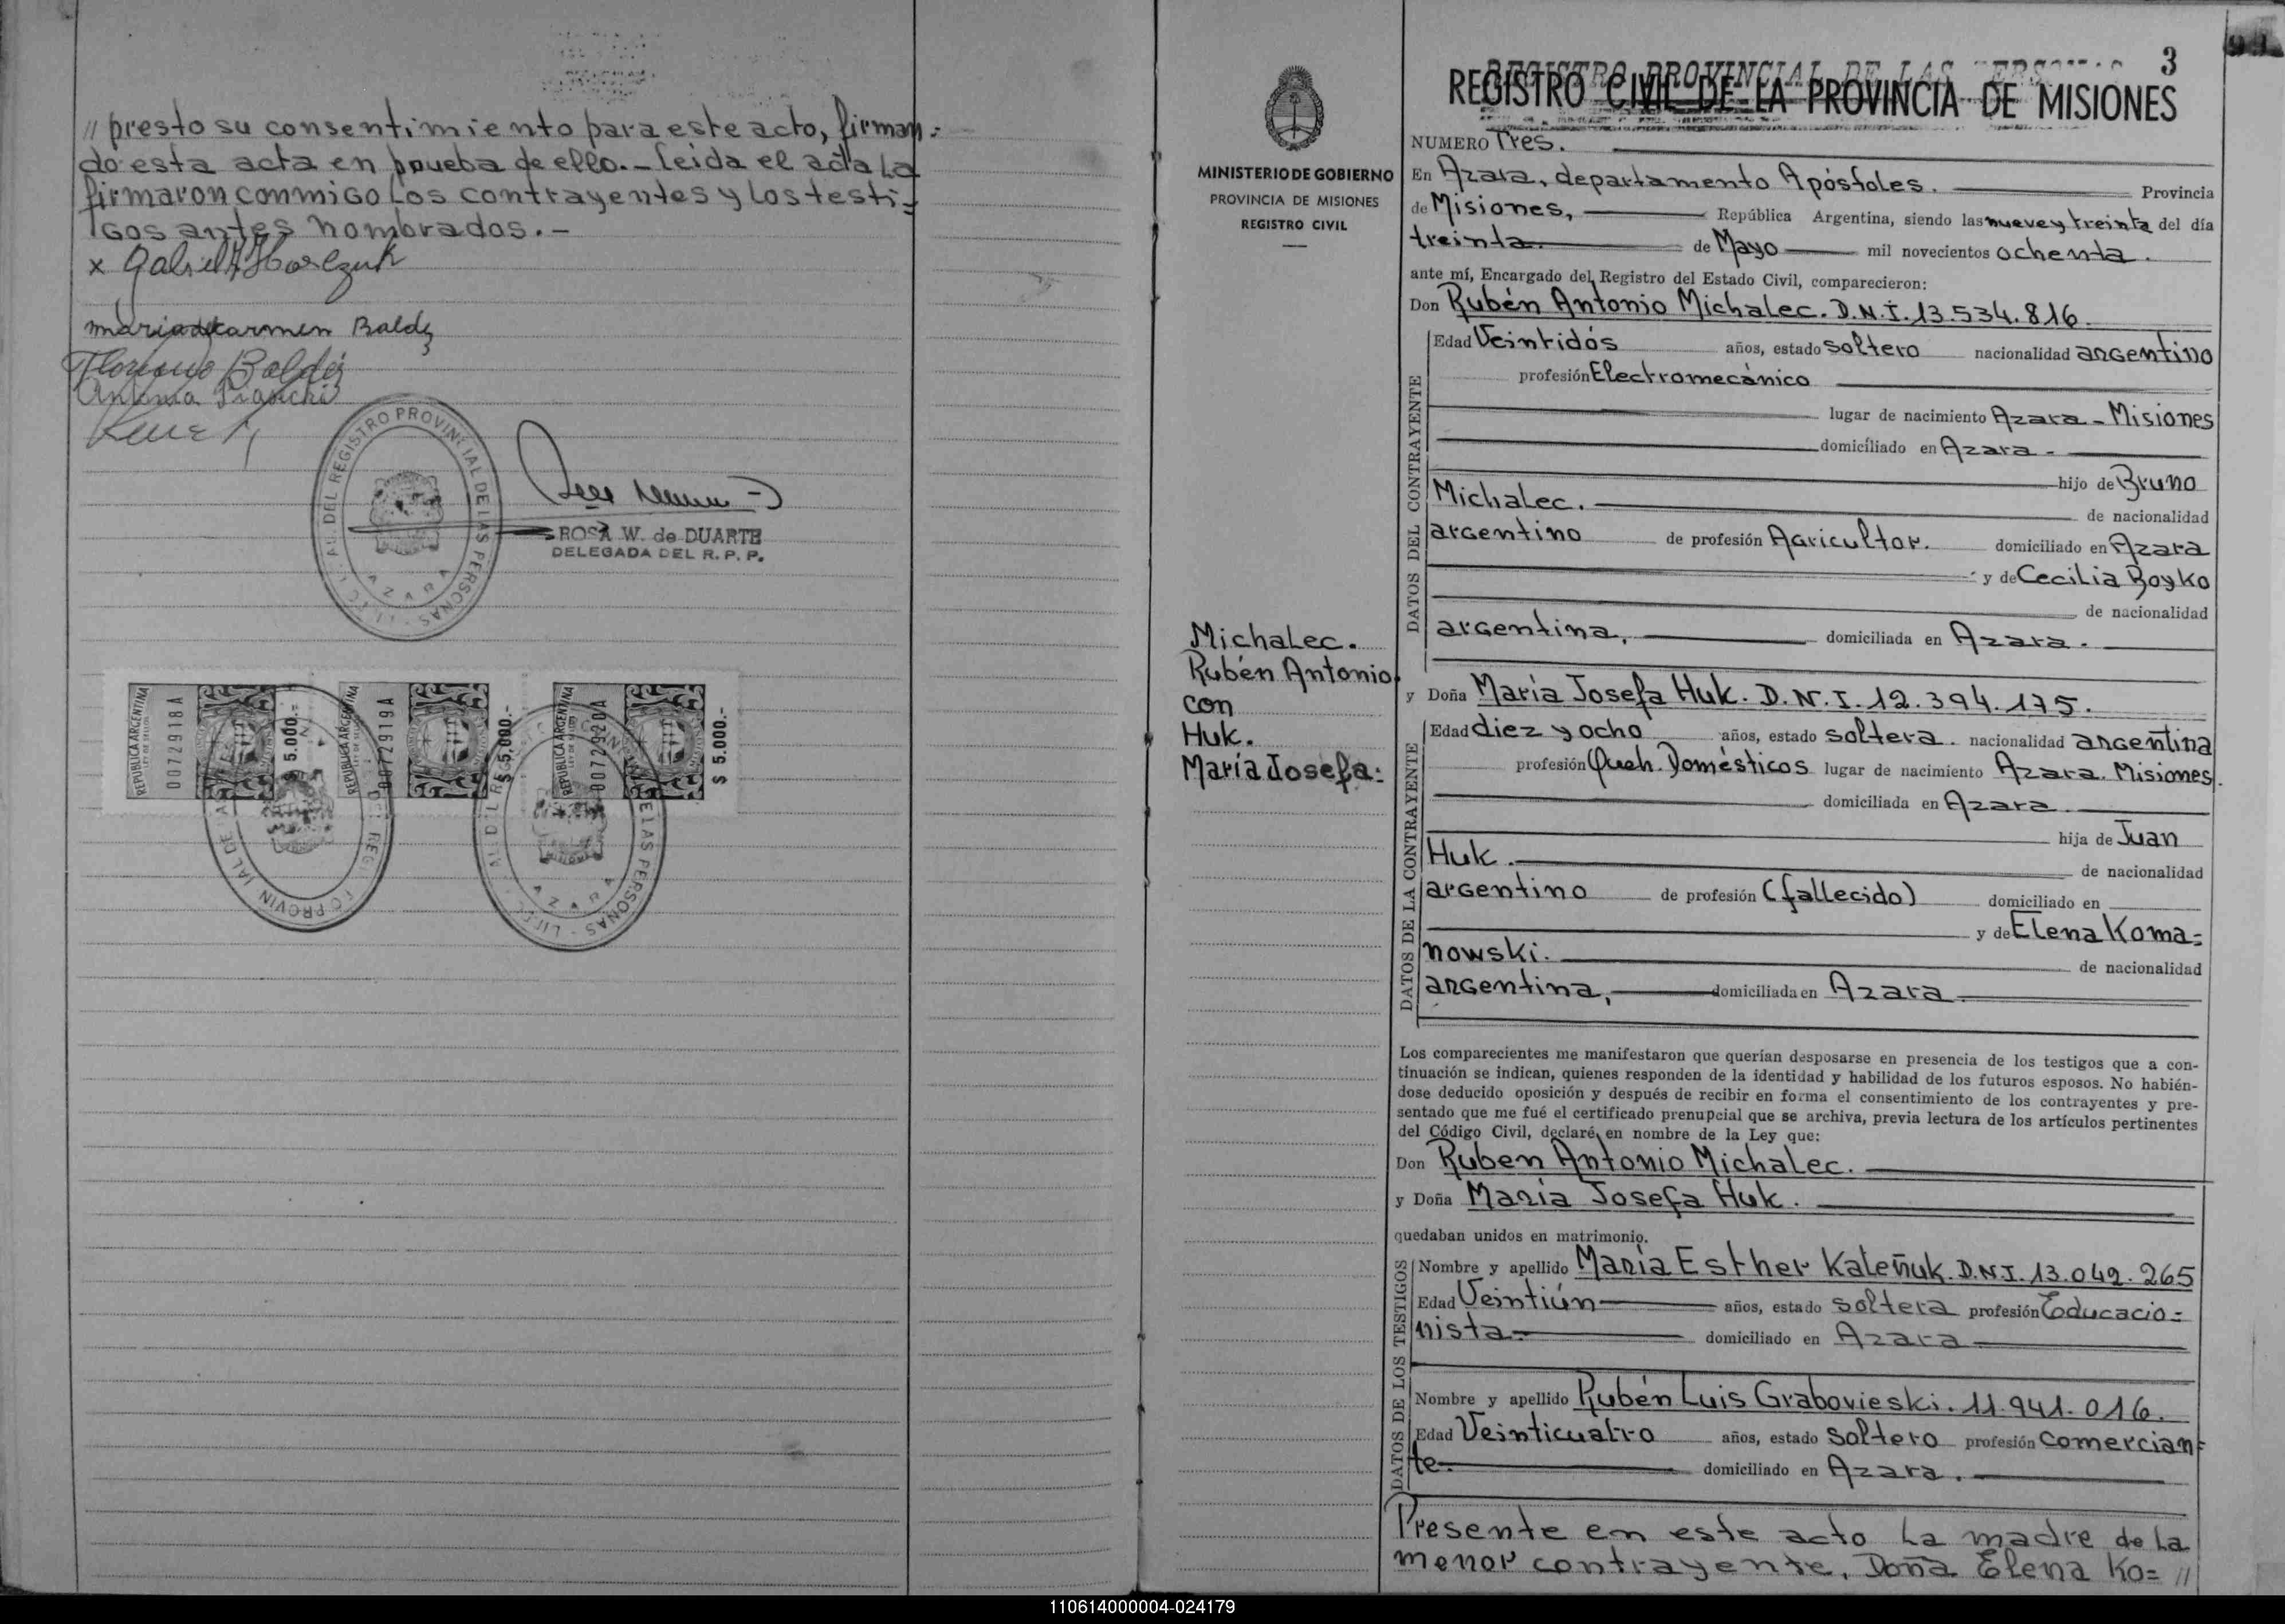 // presto su consentimiento para este acto, firman=
do esta acta en prueba de ello._ Leida el acta La
firmaron conmigo Los contrayentes y Los testi=
gos antes nombrados.-
x Gabriel
maria del carmen Baldez
Baldez
Antonia
DEL REGISTRO PROVINCIAL DE LAS PERSONAS
AZARA
ROSA W. de DUARTE
DELEGADA DEL R. P. P.
REPUBLICA ARGENTINA
0072918A
$ 5.000.-
REPUBLICA ARGENTINA
0072919A
$ 5.000.-
REPUBLICA ARGENTINA
0072920A
$ 5.000.-
AZARA
MINISTERIO DE GOBIERNO
PROVINCIA DE MISIONES
REGISTRO CIVIL
Michalec.
Rubén Antonio
con
Huk.
María Josefa:
3
REGISTRO PROVINCIAL DE LAS PERSONAS
REGISTRO CIVIL DE LA PROVINCIA DE MISIONES
NUMERO Tres.
En Azara, departamento Apóstoles. Provincia
de Misiones, República Argentina, siendo las nueve y treinta del día
treinta de Mayo mil novecientos ochenta.
ante mí, Encargado del Registro del Estado Civil, comparecieron:
Don Rubén Antonio Michalec. D.N.I. 13.534.816.
DATOS DEL CONTRAYENTE
Edad Veintidós años, estado soltero nacionalidad argentino
profesión Electromecánico
lugar de nacimiento Azara - Misiones
domiciliado en Azara -
hijo de Bruno
Michalec. de nacionalidad
argentino de profesión Agricultor. domiciliado en Azara
y de Cecilia Boyko
de nacionalidad
argentina, domiciliada en Azara.
y Doña María Josefa Huk. D.N.I. 12.394.175.
DATOS DE LA CONTRAYENTE
Edad diez y ocho años, estado soltera. nacionalidad argentina
profesión Queh. Domésticos lugar de nacimiento Azara. Misiones.
domiciliada en Azara
hija de Juan
Huk. de nacionalidad
argentino de profesión (fallecido) domiciliado en
y de Elena Koma=
nowski. de nacionalidad
argentina, domiciliada en Azara
Los comparecientes me manifestaron que querían desposarse en presencia de los testigos que a con-
tinuación se indican, quienes responden de la identidad y habilidad de los futuros esposos. No habién-
dose deducido oposición y después de recibir en forma el consentimiento de los contrayentes y pre-
sentado que me fué el certificado prenupcial que se archiva, previa lectura de los artículos pertinentes
del Código Civil, declaré, en nombre de la Ley que:
Don Ruben Antonio Michalec.
y Doña María Josefa Huk.
quedaban unidos en matrimonio.
DATOS DE LOS TESTIGOS
Nombre y apellido María Esther Kaleñuk. D.N.I. 13.042.265
Edad Veintiún años, estado soltera profesión Educacio=
nista domiciliado en Azara
Nombre y apellido Rubén Luis Grabovieski. 11.941.016.
Edad Veinticuatro años, estado soltero profesión comercian=
te. domiciliado en Azara.
Presente en este acto La madre de La
menor contrayente, Doña Elena Ko= //
110614000004-024179